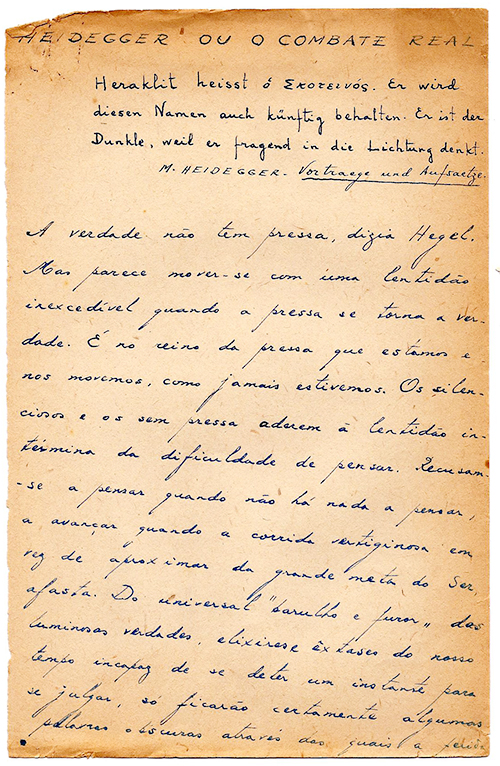 HEIDEGGER OU O COMBATE REAL
Heraklit heisst ὁ Σκοτεινός. Er wird
diesen Namen auch künftig behalten. Er ist der
Dunkle, weil er fragend in die Lichtung denkt.
M. HEIDEGGER - Vortraege und Aufsaetze.
A verdade não tem pressa, dizia Hegel.
Mas parece mover-se com uma lentidão
inexcedível quando a pressa se torna a ver-
dade. É no reino da pressa que estamos e
nos movemos, como jamais estivemos. Os silen-
ciosos e os sem pressa aderem à lentidão in-
términa da dificuldade de pensar. Recusam-
-se a pensar quando não há nada a pensar,
a avançar quando a corrida vertiginosa em
vez de aproximar da grande meta do Ser,
afasta. Do universal "barulho e furor" das
luminosas verdades, elixires e êxtases do nosso
tempo incapaz de se deter um instante para
se julgar, só ficarão certamente algumas
palavras obscuras através das quais a felici